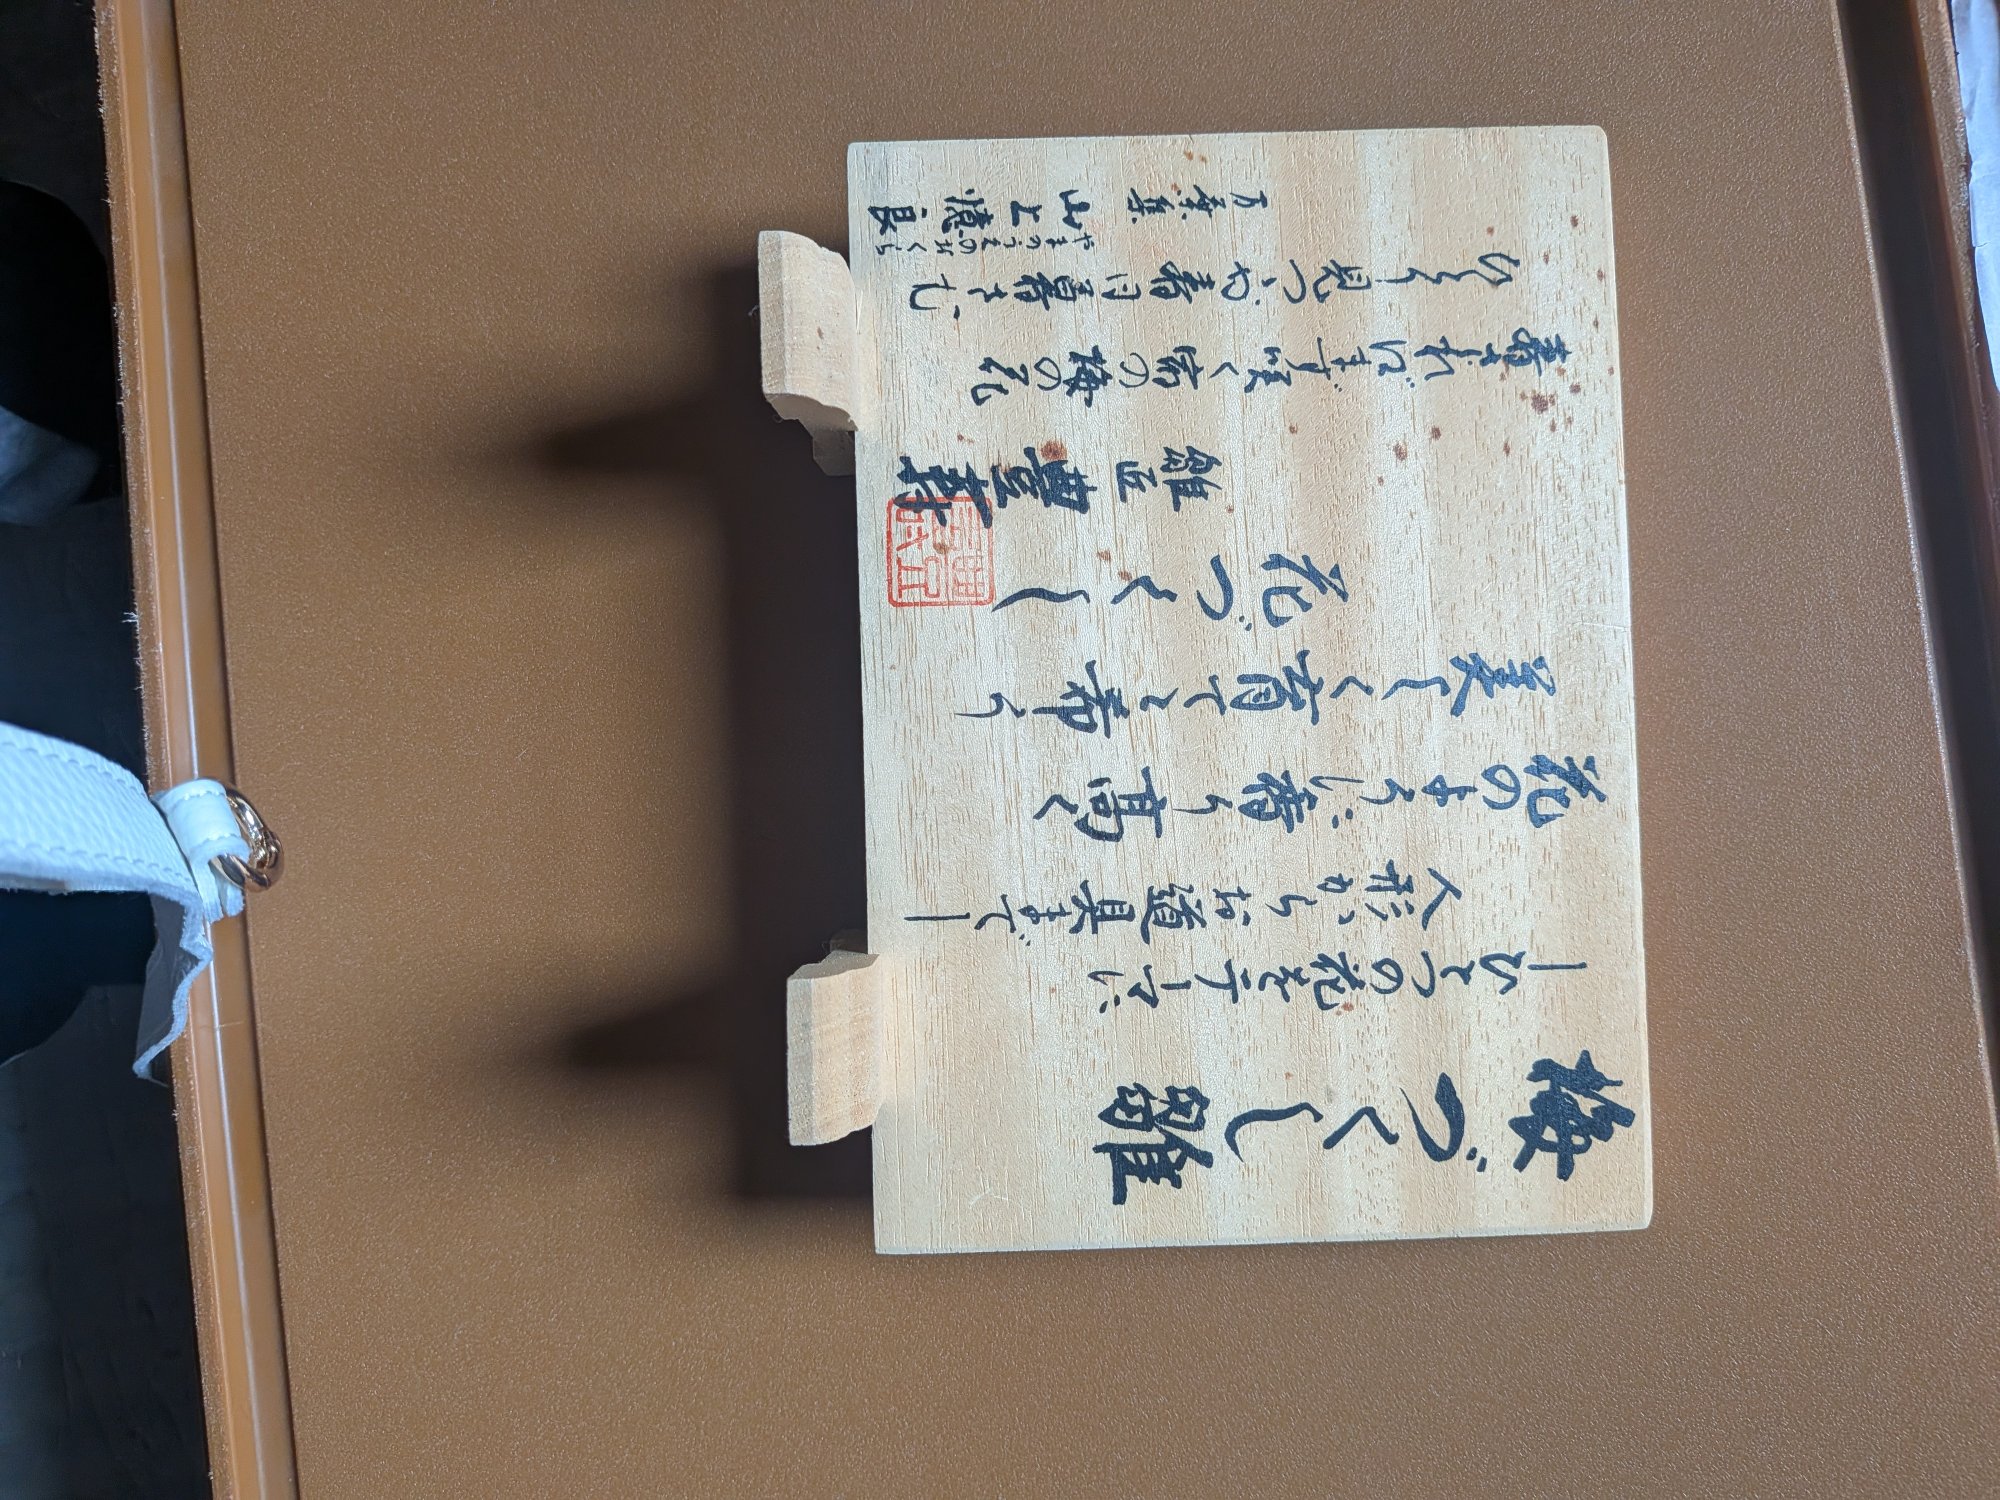 梅づくし雛
ーひとつの花をテーマに
人形からお道具までー
花のように香り高く
美しく育てと希う
花づくし
雛匠 豊寿
春さればまず咲く宿の梅の花
ひとり見つゝや春日暮さむ
万葉集 山上憶良
やまのうえのおくら